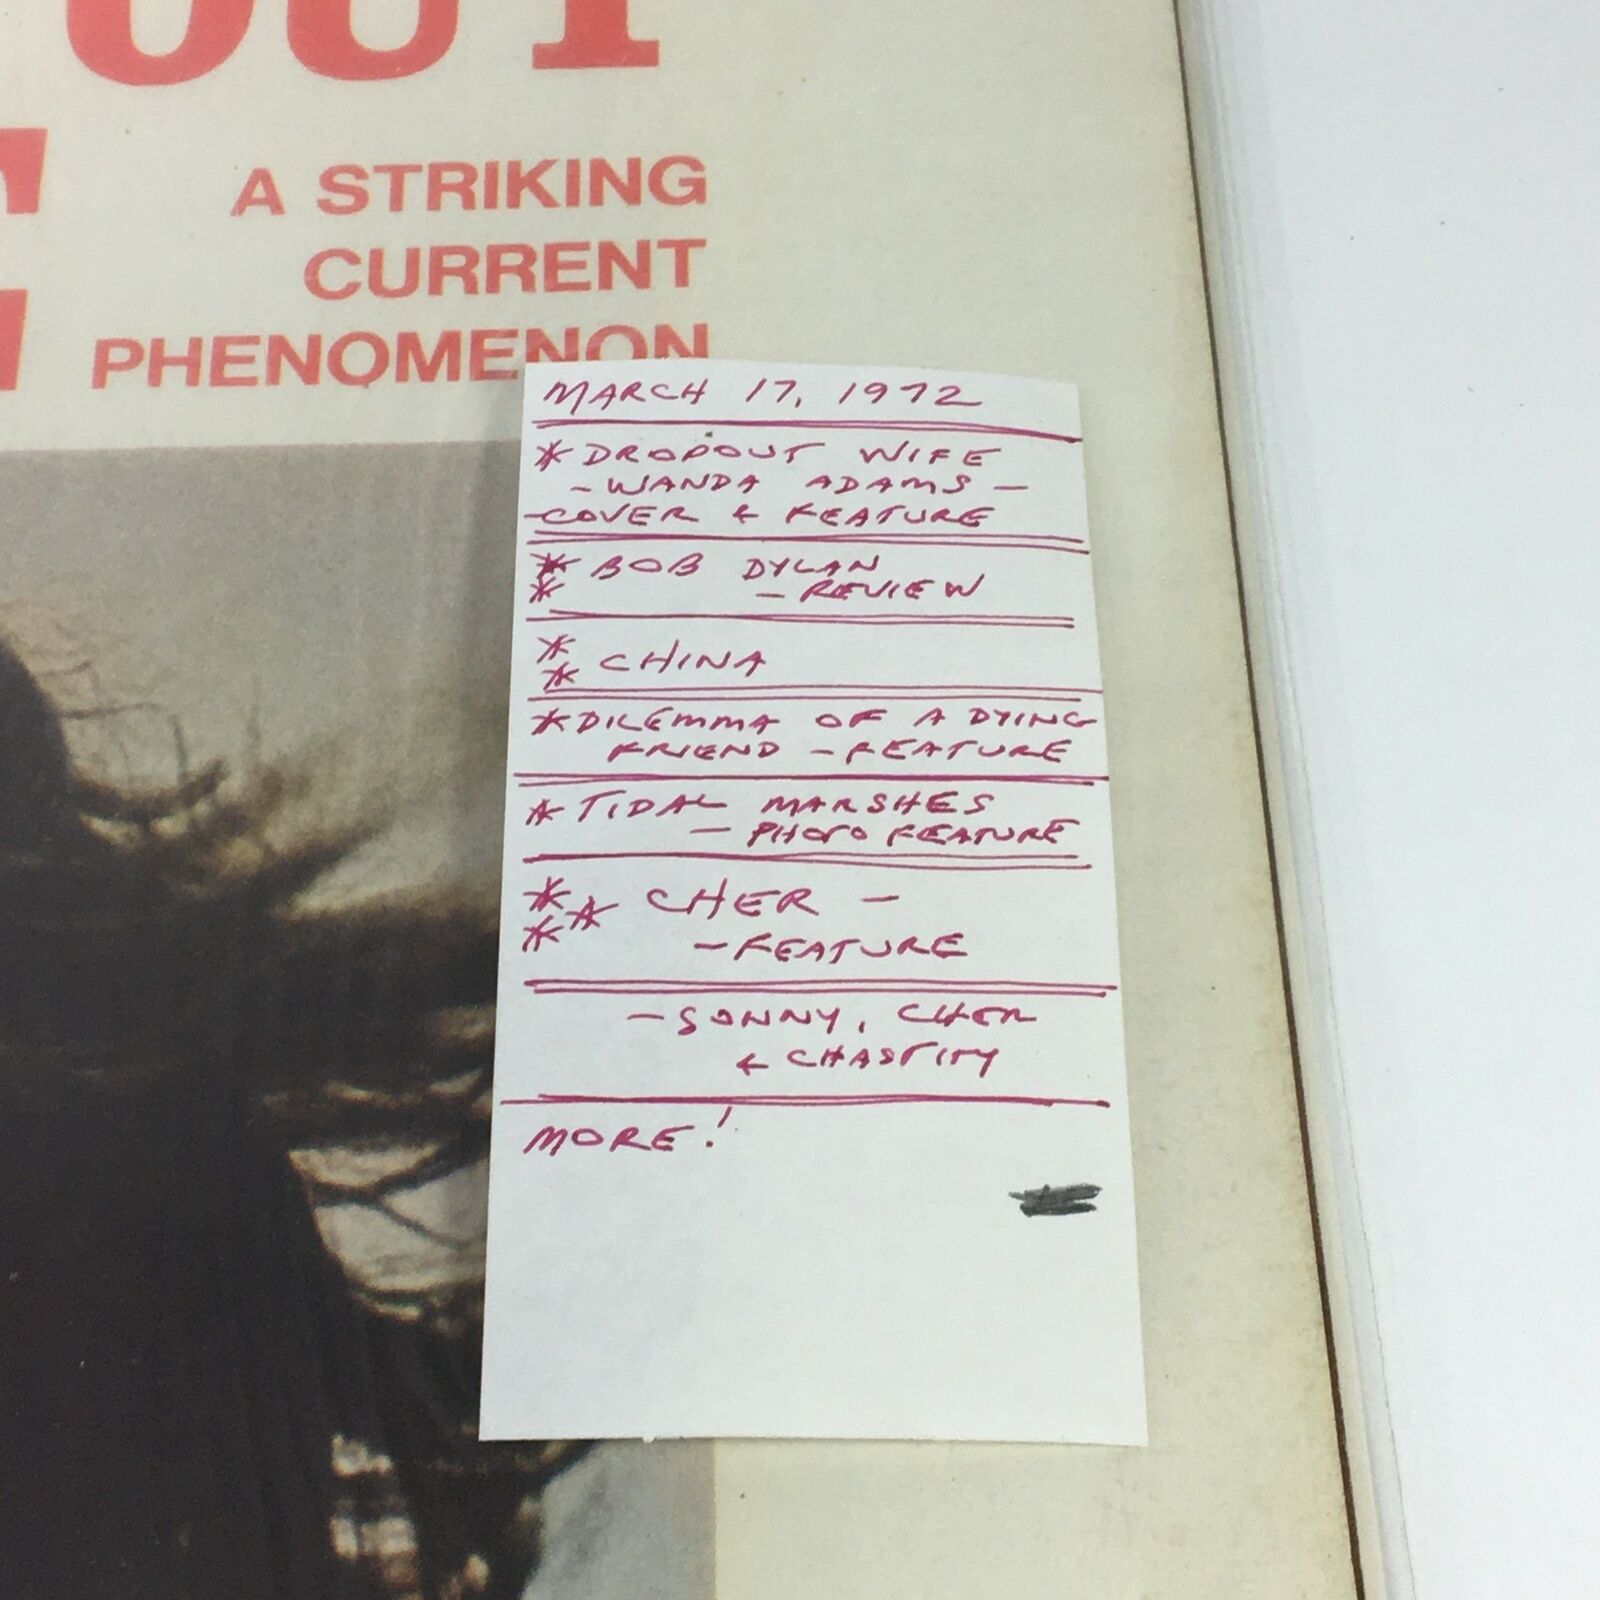 OUT
A STRIKING
CURRENT
PHENOMENON
MARCH 17, 1972
* DROPOUT WIFE
- WANDA ADAMS -
- COVER & FEATURE
* BOB DYLAN
* - REVIEW
*
* CHINA
* DILEMMA OF A DYING
FRIEND - FEATURE
* TIDAL MARSHES
- PHOTO FEATURE
* * CHER -
* - FEATURE
- SONNY, CHER
& CHASTITY
MORE!